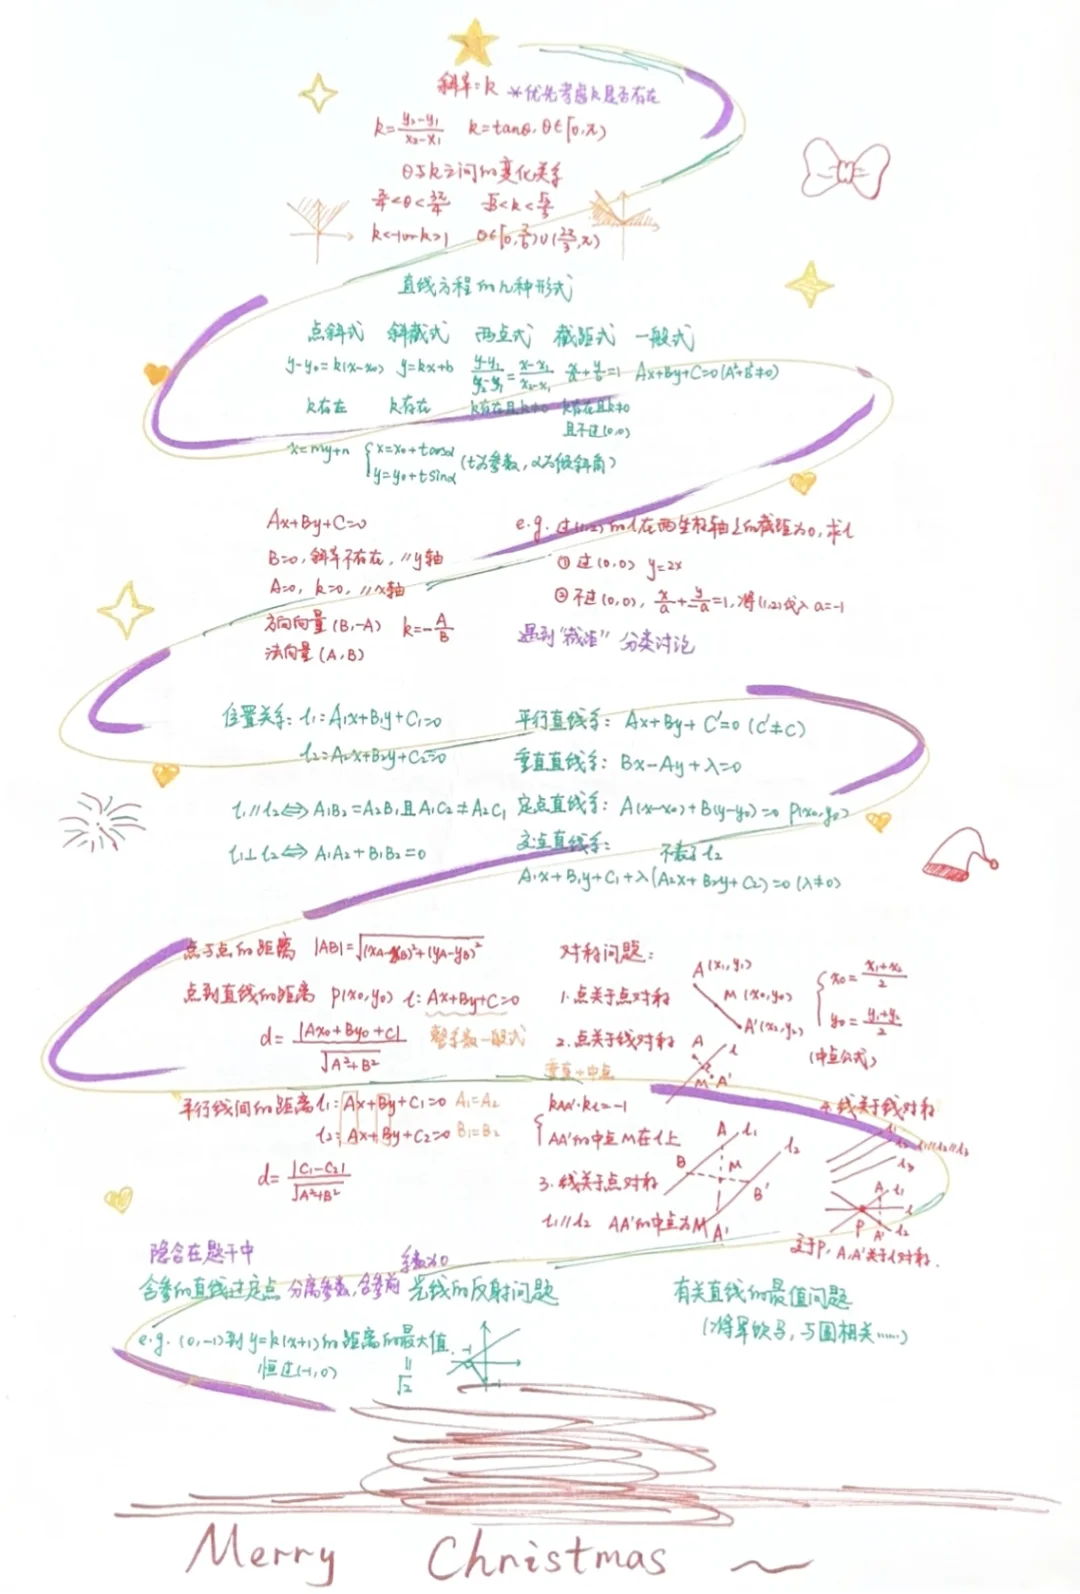 斜率:k *优先考虑k是否存在
k=\frac{y₂-y₁}{x₂-x₁} k=tanθ, θ∈[0,π)
θ与k之间的变化关系
\frac{π}{4}<θ<\frac{3π}{4}
k<-1 or k>1 θ∈[0,\frac{π}{6})∪(\frac{2π}{3},π)
直线方程的几种形式
点斜式 斜截式 两点式 截距式 一般式
y-y₀=k(x-x₀) y=kx+b \frac{y-y₁}{y₂-y₁}=\frac{x-x₁}{x₂-x₁} \frac{x}{a}+\frac{y}{b}=1 Ax+By+C=0(A²+B²≠0)
k存在 k存在 k存在且k≠0 k存在且k≠0
且不过(0,0)
x=my+n {x=x₀+tcosα
y=y₀+tsinα (t为参数,α为倾斜角)
Ax+By+C=0
B=0,斜率不存在,//y轴
A=0, k=0, //x轴
方向向量(B,-A) k=-\frac{A}{B}
法向量(A,B)
e.g. 过(1,2)的l在两坐标轴上的截距为0,求l
①过(0,0) y=2x
②不过(0,0), \frac{x}{a}+\frac{y}{-a}=1,将(1,2)代入 a=-1
遇到“截距”分类讨论
位置关系: l₁=A₁x+B₁y+C₁=0
l₂=A₂x+B₂y+C₂=0
l₁//l₂⇔A₁B₂=A₂B₁且A₁C₂≠A₂C₁
l₁⊥l₂⇔A₁A₂+B₁B₂=0
平行直线系: Ax+By+C'=0 (C'≠C)
垂直直线系: Bx-Ay+λ=0
定点直线系: A(x-x₀)+B(y-y₀)=0 P(x₀,y₀)
交点直线系: 不表示l₂
A₁x+B₁y+C₁+λ(A₂x+B₂y+C₂)=0 (λ≠0)
点与点的距离 |AB|=\sqrt{(x_A-x_B)²+(y_A-y_B)²}
点到直线的距离 P(x₀,y₀) l:Ax+By+C=0
d=\frac{|Ax₀+By₀+C|}{\sqrt{A²+B²}} 整系数一般式
平行线间的距离 l₁:Ax+By+C₁=0 A₁=A₂
l₂:Ax+By+C₂=0 B₁=B₂
d=\frac{|C₁-C₂|}{\sqrt{A²+B²}}
对称问题:
1.点关于点对称
A(x₁,y₁)
M(x₀,y₀)
A'(x₂,y₂)
{x₀=\frac{x₁+x₂}{2}
y₀=\frac{y₁+y₂}{2}
(中点公式)
2.点关于线对称
A l
M A'
垂直+中点
{k_{AA'}·k_l=-1
AA'的中点M在l上
3.线关于点对称
l₁//l₂ AA'的中点为M
A l₁ l₂
B M B'
A'
4.线关于线对称
l₁
l₂ l₁//l₂//l₃
l₃
A l₁
l
P A' l₂
交于P, A,A'关于l对称.
隐含在题干中
含参的直线过定点 分离参数,含参前系数为0
e.g. (0,-1)到y=k(x+1)的距离的最大值.
恒过(-1,0)
\sqrt{2}
-1
-1
光线的反射问题
有关直线的最值问题
(将军饮马,与圆相关……)
Merry Christmas ~